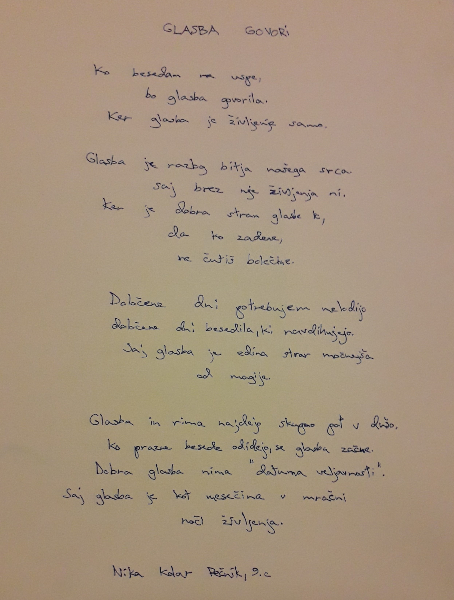 GLASBA GOVORI
Ko besedam ne uspe,
bo glasba govorila.
Ker glasba je življenje samo.
Glasba je razlog bitja našega srca
saj brez nje življenja ni.
Ker je dobra stran glasbe ,
da ko zadene,
ne čutiš bolečine.
Določene dni potrebujem melodijo
določene dni besedila, ki navdihujejo.
Saj glasba je edina stvar močnejša
od magije.
Glasba in rima najdejo skupno pot v dušo.
Ko prazne besede odidejo, se glasba začne.
Dobra glasba nima "datuma veljavnosti".
Saj glasba je kot mesečina v mračni
noči življenja.
Nika Kolar , 9.c